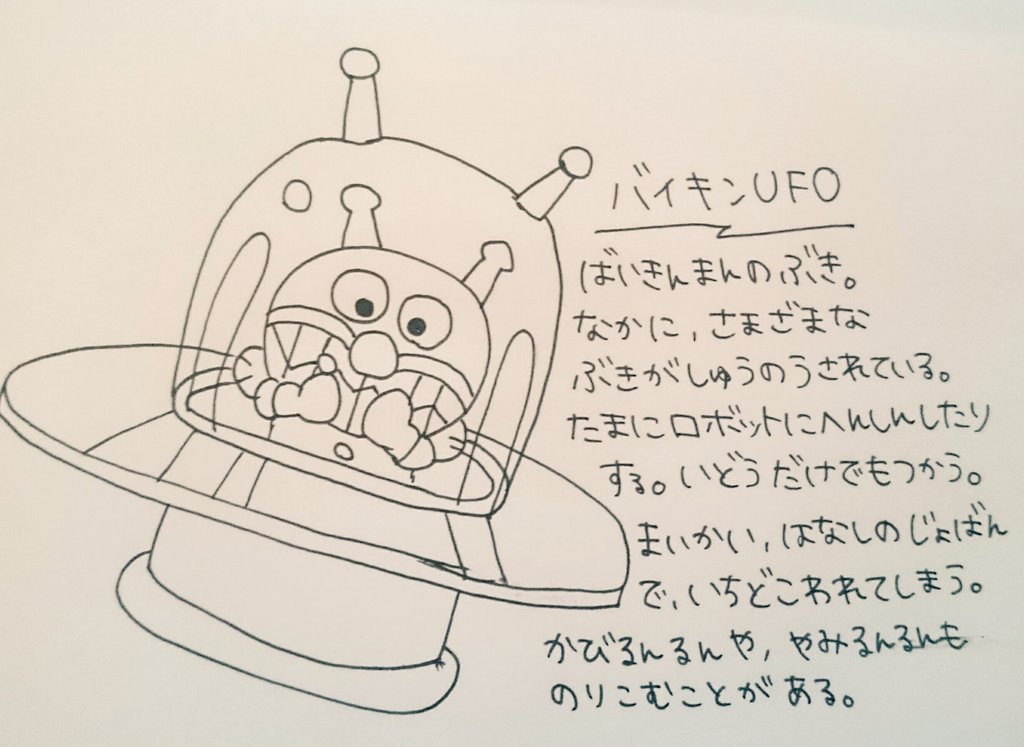 バイキンUFO
ばいきんまんのぶき。
なかに,さまざまな
ぶきがしゅうのうされている。
たまにロボットにへんしんしたり
する。いどうだけでもつかう。
まいかい,はなしのじょばん
で,いちどこわれてしまう。
かびるんるんや,やみるんるんも
のりこむことがある。